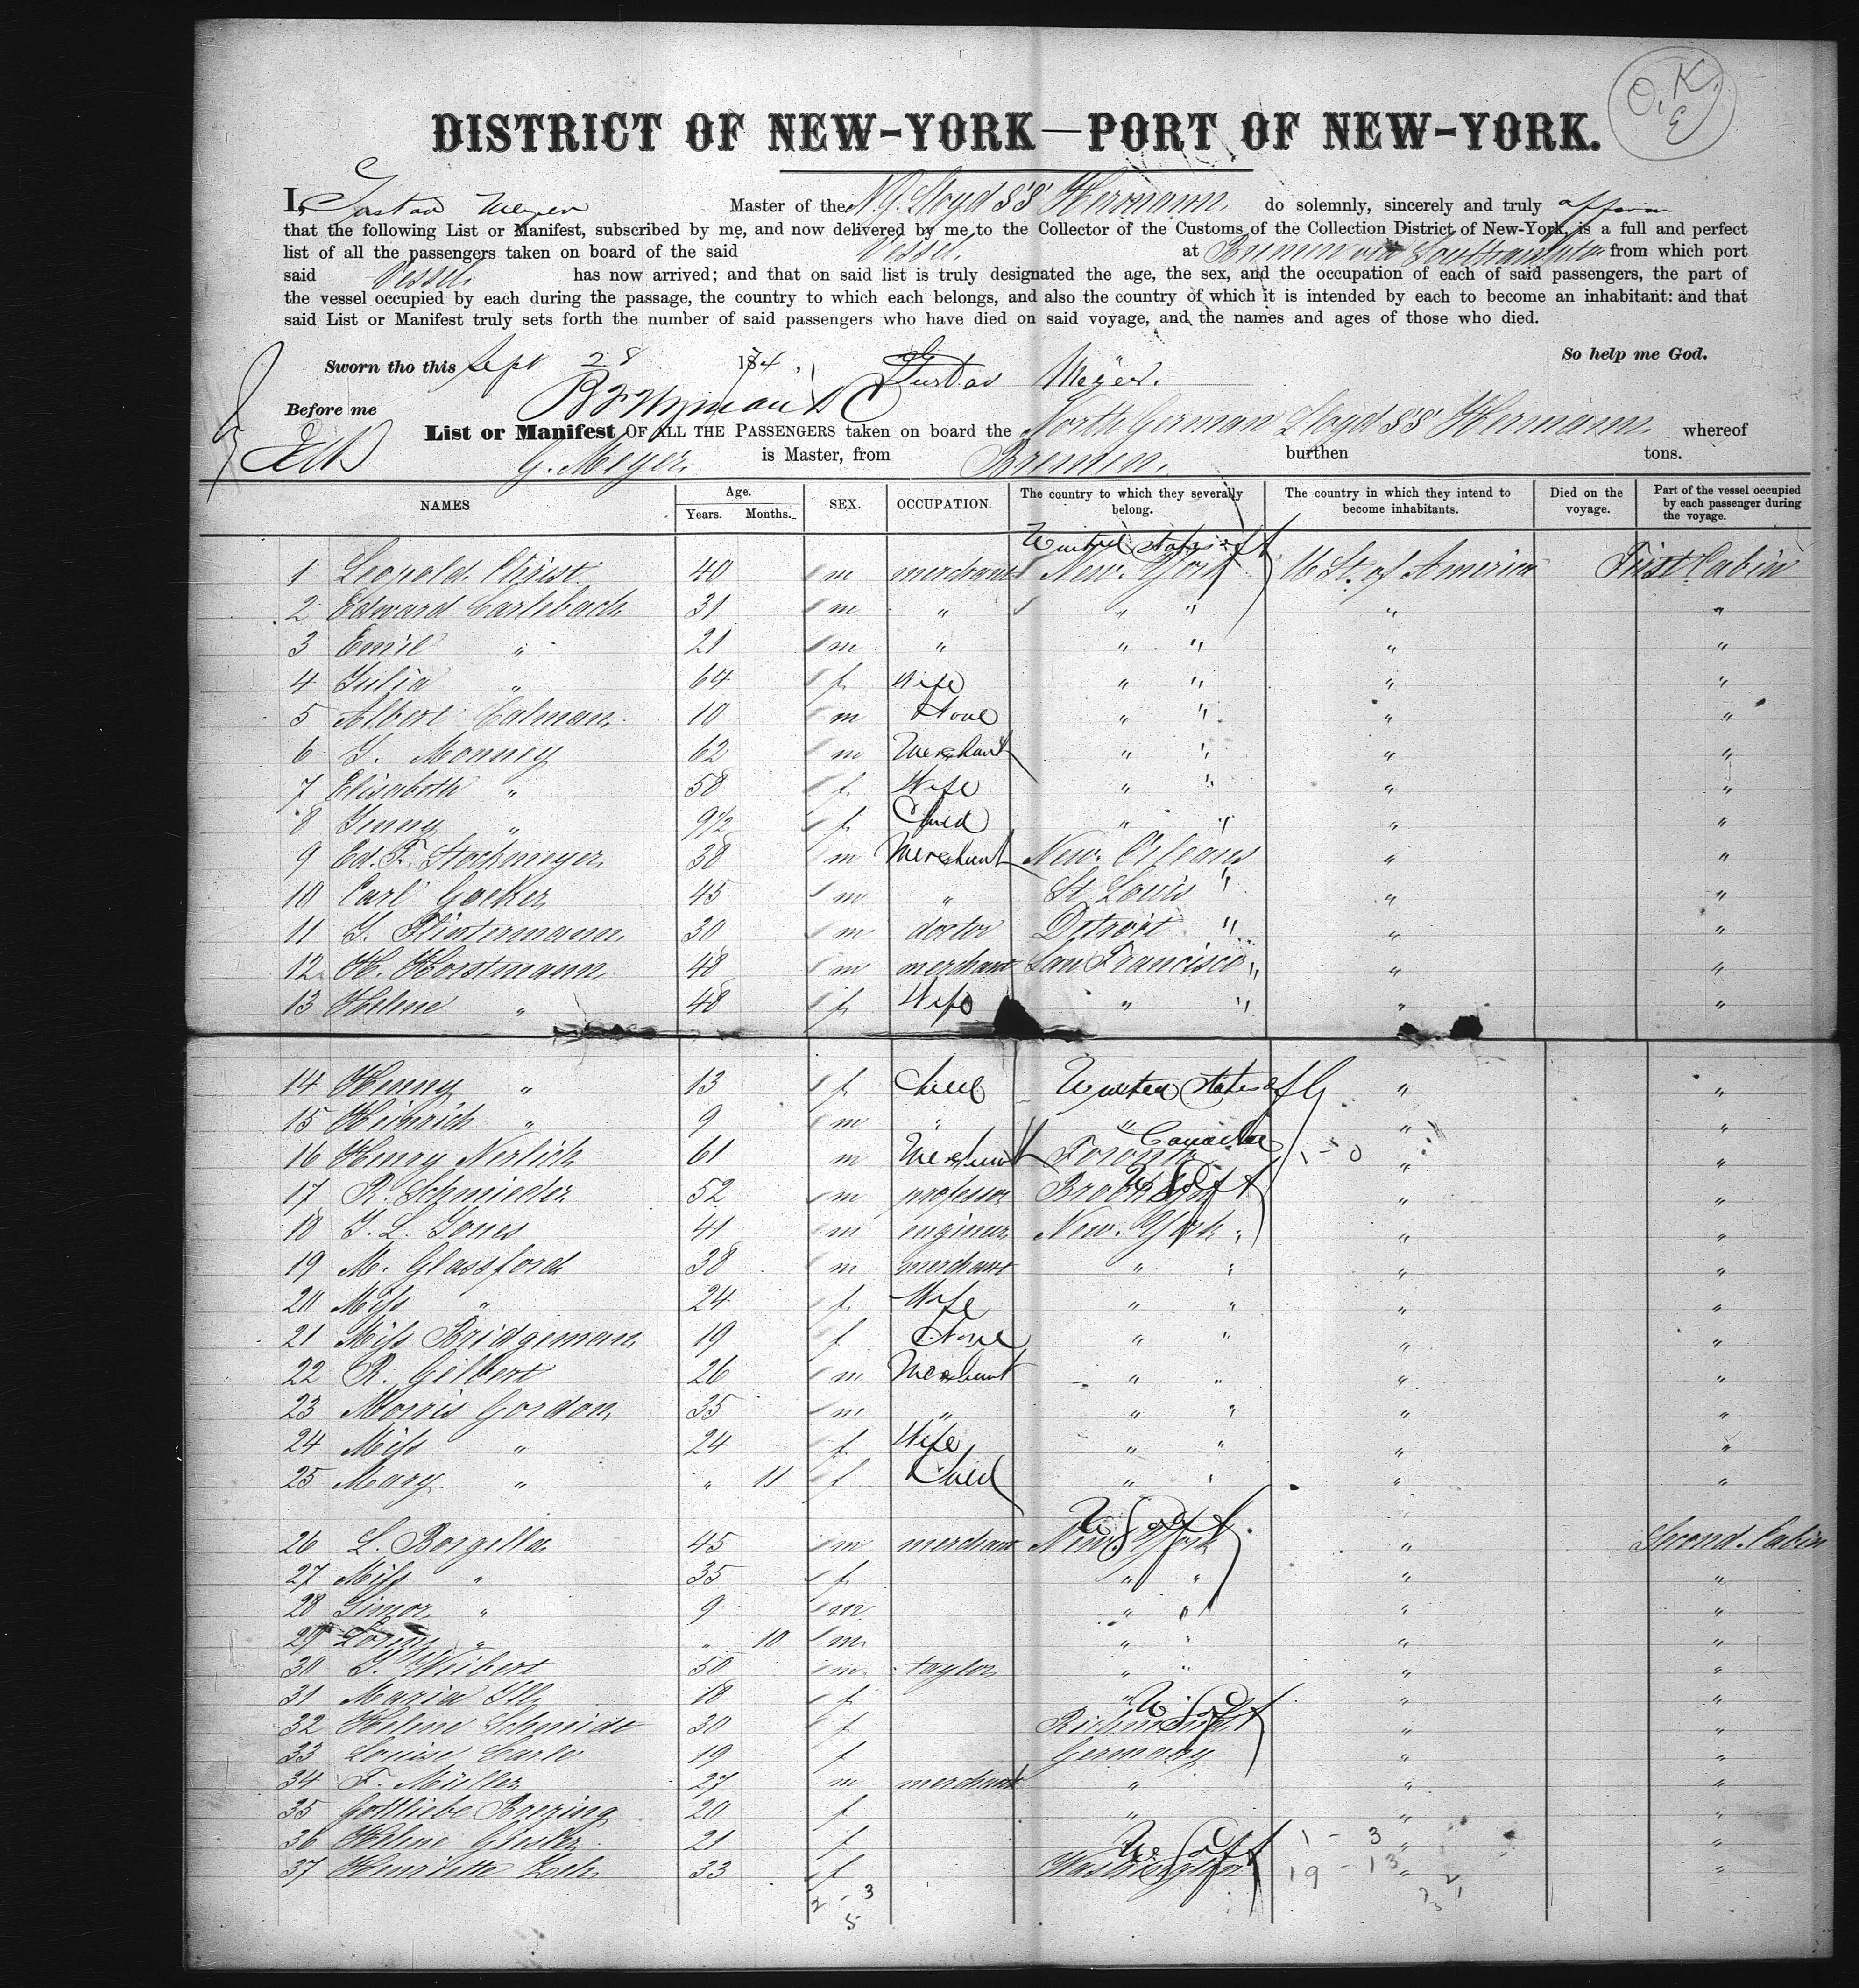 O.K.
E
DISTRICT OF NEW-YORK—PORT OF NEW-YORK.
I, Gustav Meyer Master of the N. G. Lloyd SS Hermann do solemnly, sincerely and truly affirm
that the following List or Manifest, subscribed by me, and now delivered by me to the Collector of the Customs of the Collection District of New-York, is a full and perfect
list of all the passengers taken on board of the said Vessel at Bremen via Southampton from which port
said Vessel has now arrived; and that on said list is truly designated the age, the sex, and the occupation of each of said passengers, the part of
the vessel occupied by each during the passage, the country to which each belongs, and also the country of which it is intended by each to become an inhabitant: and that
said List or Manifest truly sets forth the number of said passengers who have died on said voyage, and the names and ages of those who died.
So help me God.
Sworn tho this Sept 28 1874, Gustav Meyer.
Before me
List or Manifest OF ALL THE PASSENGERS taken on board the North German Lloyd SS Hermann whereof
G. Meyer. is Master, from Bremen. burthen tons.
NAMES Age. Years. Months. SEX. OCCUPATION. The country to which they severally belong. The country in which they intend to become inhabitants. Died on the voyage. Part of the vessel occupied by each passenger during the voyage.
United States of A
1 Leopold Christ 40 m merchant New York U St. of America First Cabin
2 Edward Carlebach 31 m " " " " "
3 Emil " 21 m " " " " "
4 Julia " 64 f Wife " " " "
5 Albert Calman 10 m None " " " "
6 J. Monney 62 m Merchant " " " "
7 Elisabeth " 58 f Wife " " " "
8 Jenny " 9½ f Child " " " "
9 Ed. F. Stockmeyer 38 m Merchant New Orleans " "
10 Carl Goeker 45 m " St Louis " " "
11 J. Flintermann 30 m doctor Detroit " " "
12 H. Horstmann 48 m merchant San Francisco " " "
13 Helene " 48 f Wife " " " "
14 Henny " 13 f Child United States of A " "
15 Heinrich " 9 m " " " "
16 Henry Nerlich 61 m Merchant Toronto Canada 1 - 0 " "
17 R. Schmieder 52 m professor Brooklyn U S of A " "
18 J. L. Jones 41 m engineer New York " " "
19 M. Glassford 38 m merchant " " " "
20 Miss " 24 f Wife " " " "
21 Miss Bridgeman 19 f None " " " "
22 R. Gilbert 26 m Merchant " " " "
23 Morris Gordon 35 m " " " " "
24 Miss " 24 f Wife " " " "
25 Mary " " 11 f Child " " " "
U S of A
26 L. Borgella 45 m merchant New York " Second Cabin
27 Miss " 35 f " " " "
28 Simor " 9 m " " " "
29 " " 10 m " " " "
30 J. Weibert 50 m taylor " " " "
31 Maria Ill 18 f " " "
U S of A
32 Helene Schmidt 30 f Richmond " "
33 Louise Carle 19 f Germany " "
34 F. Müller 27 m merchant " " "
35 Gottliebe Boezing 20 f " " "
36 Helene 21 f 1 - 3 " "
U S of A
37 Henriette Zeh 33 f Washington 19 - 13 " "
2 - 3
5